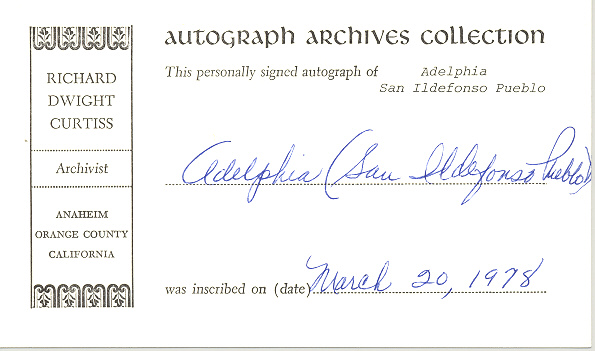 RICHARD
DWIGHT
CURTISS
Archivist
ANAHEIM
ORANGE COUNTY
CALIFORNIA
AUTOGRAPH ARCHIVES COLLECTION
This personally signed autograph of Adelphia
San Ildefonso Pueblo
Adelphia (San Ildefonso Pueblo)
was inscribed on (date) March 20, 1978